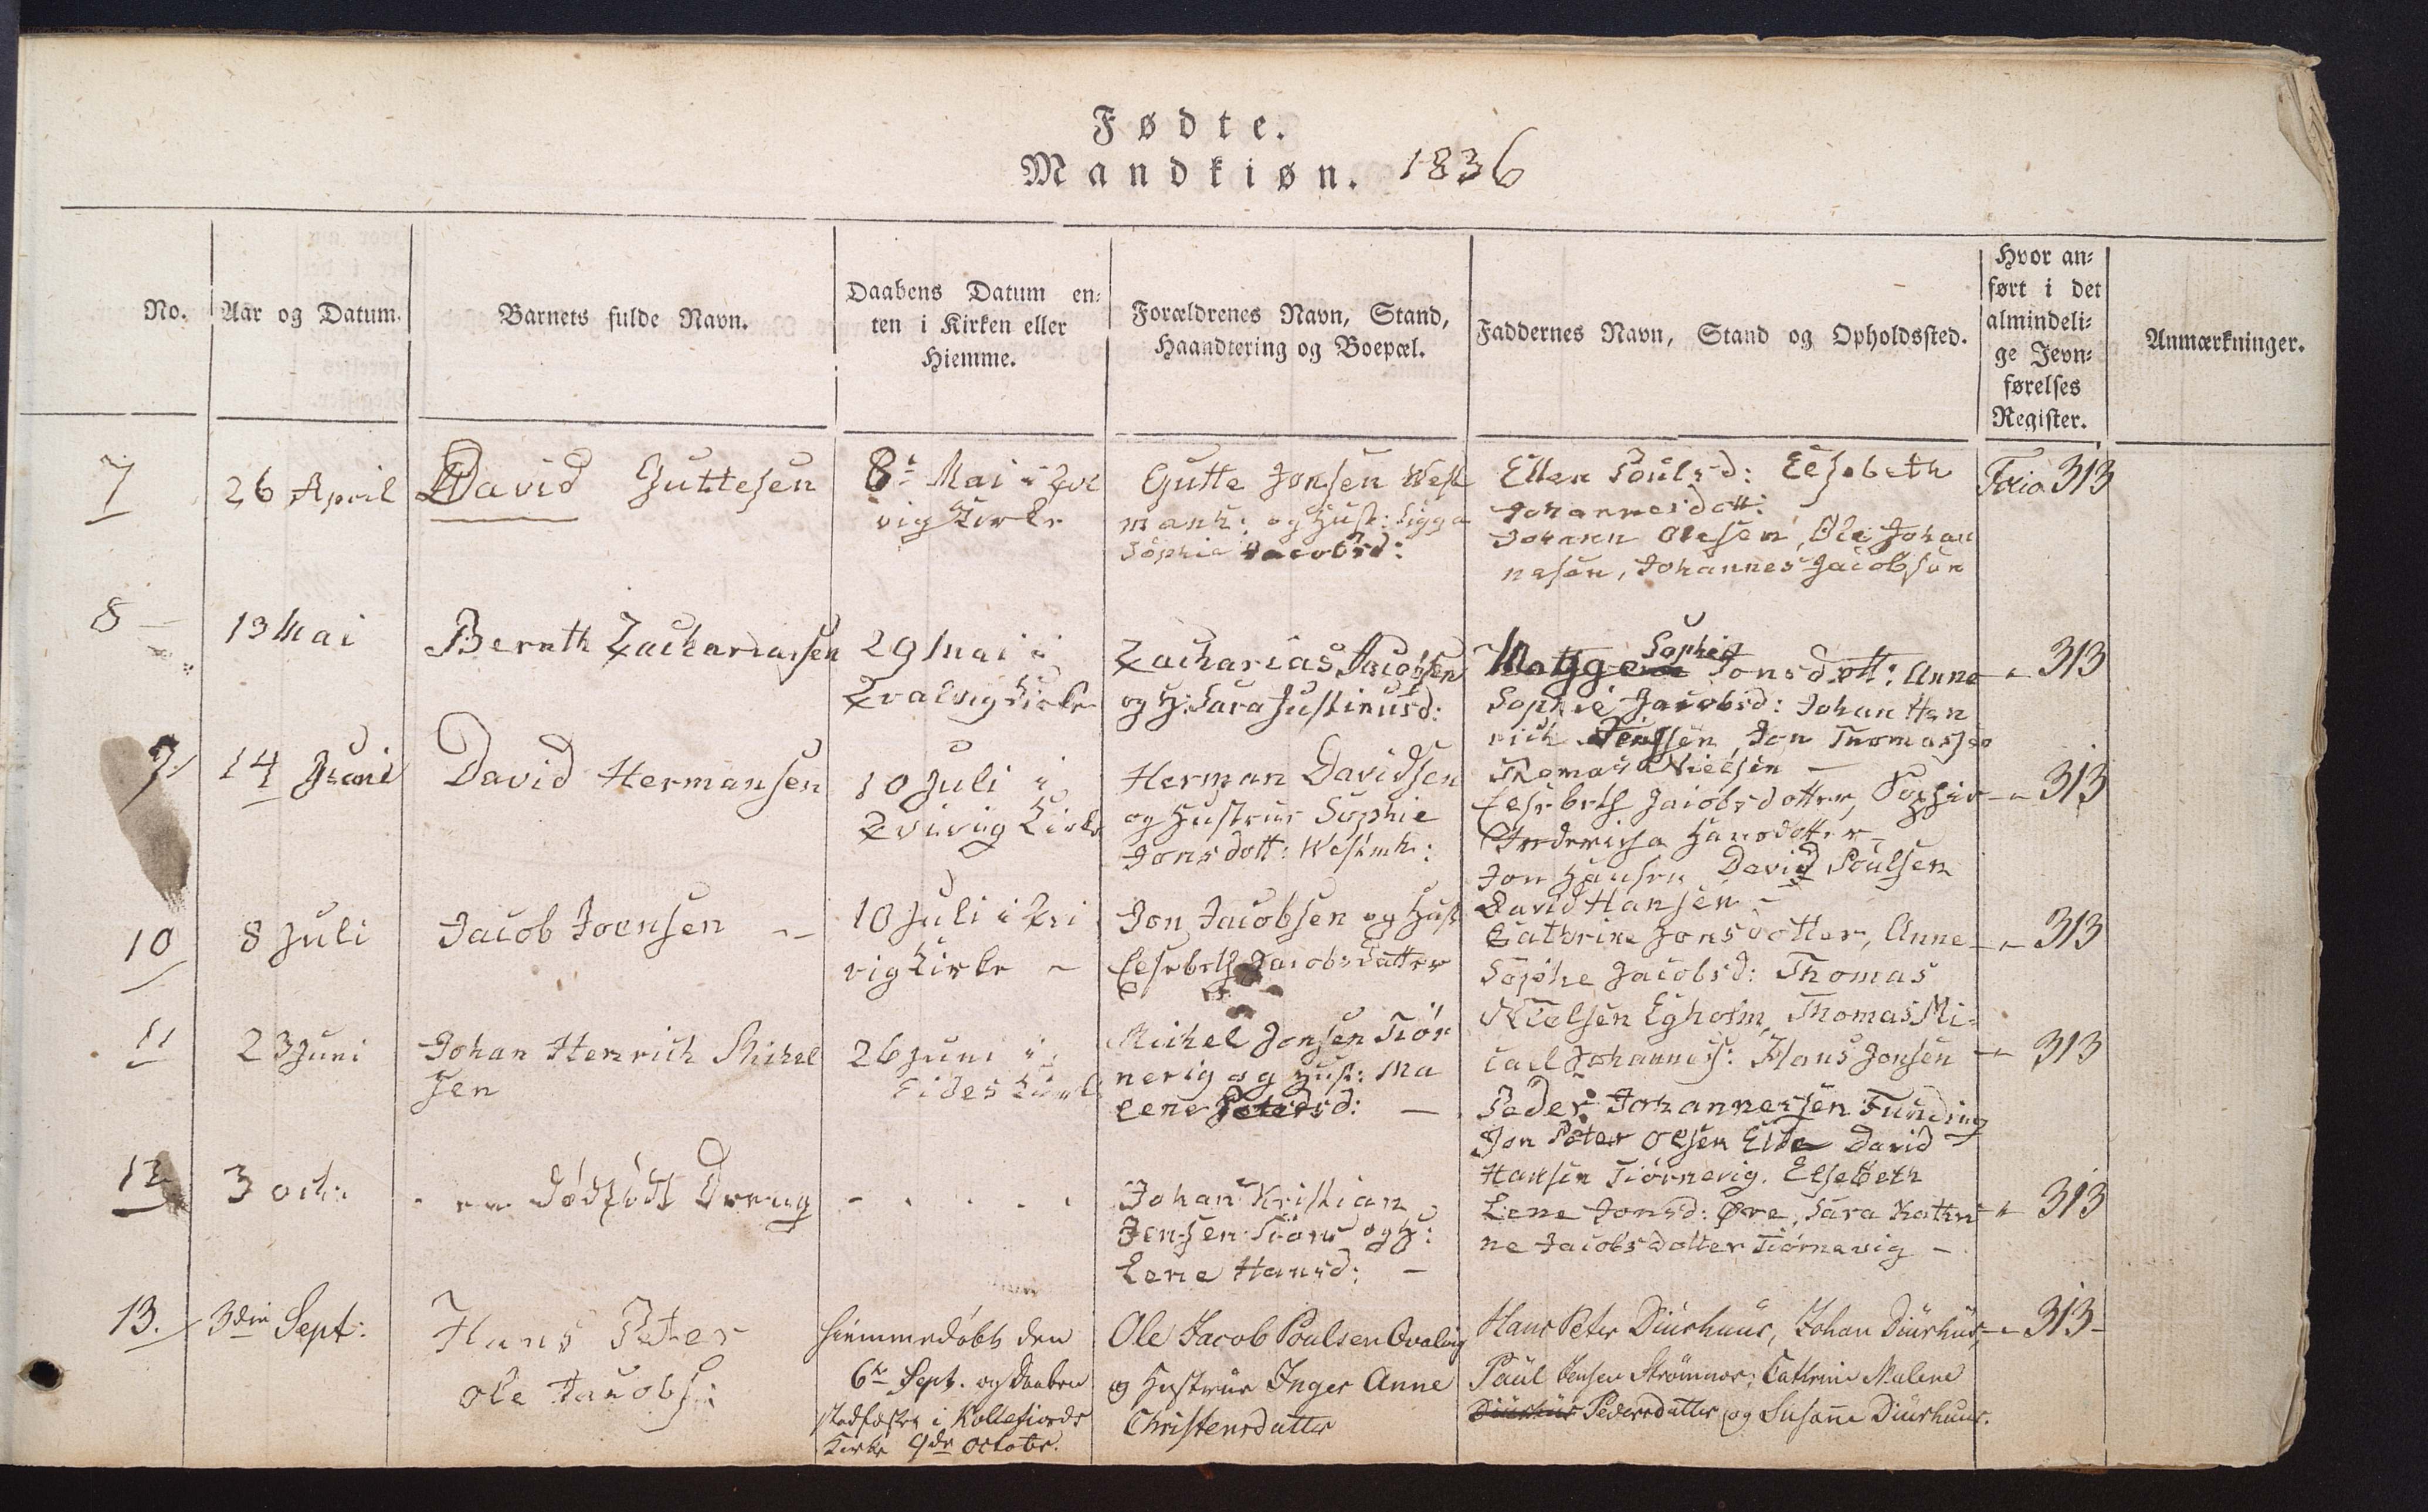 Fødte.
Mandkiøn. 1836
No.
Aar og Datum.
Barnets fulde Navn.
Daabens Datum en-
ten i Kirken eller
Hiemme.
Forældrenes Navn, Stand,
Haandtering og Boepæl.
Faddernes Navn, Stand og Opholdssted.
Hvor an-
ført i det
almindeli-
ge Jevn-
førelses
Register.
Anmærkninger.
7
26 April
David Guttesen
8 Mai i
vig Kirke
Gutte Jonsen West
mank: og Hust: Sigga
Sophie Jacobsd:
Ellen Poulsd: Elsebeth
Johannesdott:
Johann Olesen, Ole Johan
nesen, Johannes Jacobsen
Folio 313
8
13 Mai
Bernth Zachariassen
29 Mai i
Qvalvig Kirke
Zacharias Jacobsen
og H: Sara Justinusd:
Sophia
Jonsdott: Anne
Sophie Jacobsd: Johan Hen
rich Jensen, Jon Thomassen
Thomas Nielsen —
" 313
14 Juni
David Hermansen
10 Juli i
Kirke
Herman Davidsen
og Hustrue Sophie
Jonsdott: Westmk:
Elsebeth Jacobsdotter, Sophie
Frederica Hansdotter
Jon Hansen David Poulsen
David Hansen —
" 313
10
8 Juli
Jacob Joensen
10 Juli i
vig Kirke
Jon Jacobsen og Hust
Elsebeth Jacobsdatter
Cathrine Jonsdotter, Anne
Sophe Jacobsd: Thomas
Nielsen Egholm, Thomas Mi-
cael Johanness: Hans Jonsen
" 313
11
23 Juni
Johan Henrich Michel
sen
26 Juni i
Eides Kirke
Michel Jonsen Tiør
nevig og Hust: Ma
lene Petersd: —
Peder Johannessen Funding
Jon Peter Olsen Eide David
Hansen Tiørnevig. Elsebeth
Lene Jonsd: Øre, Sara Kathri
ne Jacobsdotter Tiørnevig —
" 313
12
3 octr:
en dødfødt Dreng
Johan Kristian
Jensen og H:
Lene Hansd: —
" 313
13.
3die Sept:
Hans Peter
Ole Jacobs:
hiemmedøbt den
6te Sept. og Daaben
stadfæstet i Kollefiords
Kirke 9de Octobr.
Ole Jacob Poulsen Qvalvig
og Hustrue Inger Anne
Christensdatter
Hans Peter Diurhuus, Johan Diurhus,
Paul Jensen Strømnæs, Cathrine Malene
Diurhus Pedersdatter og Susanne Diurhuus.
" 313